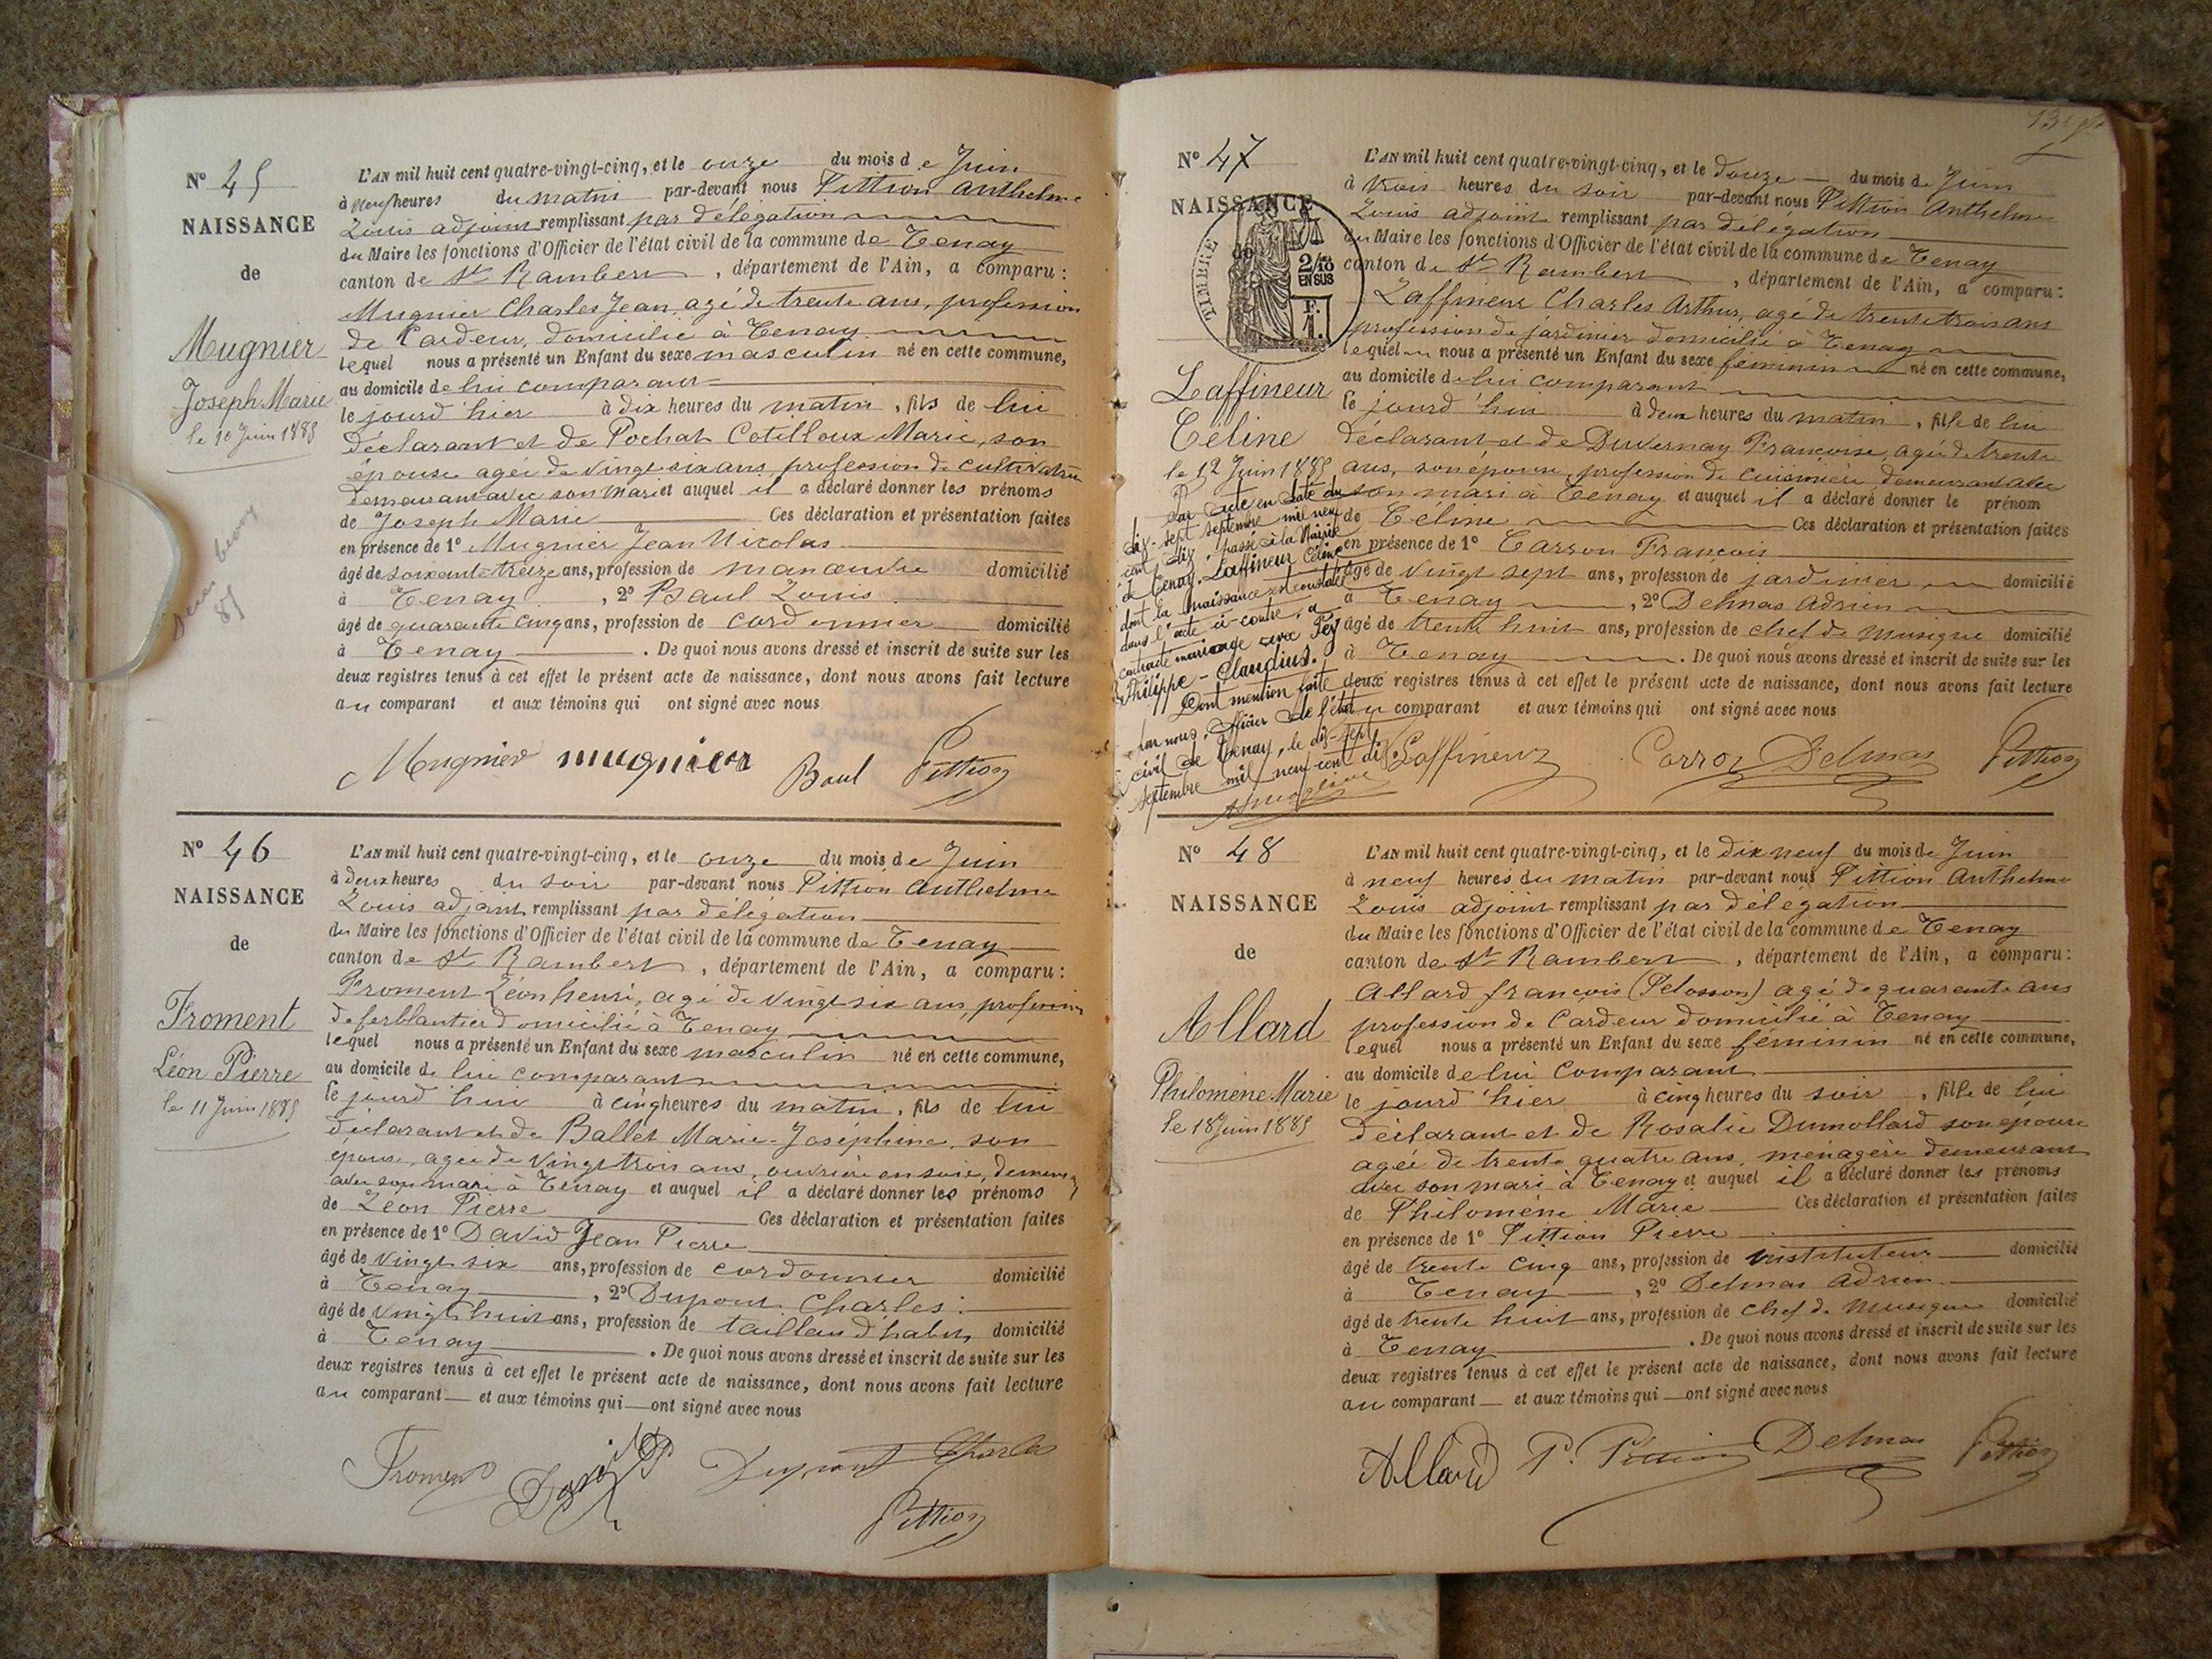 Nº 45
NAISSANCE
de
Mugnier
Joseph Marie
le 10 Juin 1885
L'AN mil huit cent quatre-vingt-cinq, et le onze du mois de Juin
à neuf heures du matin par-devant nous Pittion Anthelme
Louis adjoint remplissant par délégation
du Maire les fonctions d'Officier de l'état civil de la commune de Tenay
canton de St Rambert, département de l'Ain, a comparu :
Mugnier Charles Jean, agé de trente ans, profession
de Cardeur, domicilié à Tenay
lequel nous a présenté un Enfant du sexe masculin né en cette commune,
au domicile de lui comparant
le jourd'hier à dix heures du matin, fils de lui
déclarant et de Pochat Cotilloux Marie, son
épouse agée de vingt six ans, profession de cultivatrice
demeurant avec son mari et auquel il a déclaré donner les prénoms
de Joseph Marie Ces déclaration et présentation faites
en présence de 1º Mugnier Jean Nicolas
âgé de soixante treize ans, profession de manoeuvre domicilié
à Tenay, 2º Baul Louis
âgé de quarante cinq ans, profession de cordonnier domicilié
à Tenay. De quoi nous avons dressé et inscrit de suite sur les
deux registres tenus à cet effet le présent acte de naissance, dont nous avons fait lecture
au comparant et aux témoins qui ont signé avec nous
Mugnier mugnier Baul Pittion
Nº 46
NAISSANCE
de
Froment
Léon Pierre
le 11 Juin 1885
L'AN mil huit cent quatre-vingt-cinq, et le onze du mois de Juin
à deux heures du soir par-devant nous Pittion Anthelme
Louis adjoint remplissant par délégation
du Maire les fonctions d'Officier de l'état civil de la commune de Tenay
canton de St Rambert, département de l'Ain, a comparu :
Froment Léon henri, agé de vingt six ans, profession
de ferblantier domicilié à Tenay
lequel nous a présenté un Enfant du sexe masculin né en cette commune,
au domicile de lui comparant
le jourd'hui à cinq heures du matin, fils de lui
déclarant et de Ballet Marie-Joséphine, son
épouse, agée de vingt trois ans, ouvrière en soie, demeurant
avec son mari à Tenay et auquel il a déclaré donner les prénoms
de Léon Pierre Ces déclaration et présentation faites
en présence de 1º David Jean Pierre
âgé de vingt six ans, profession de cordonnier domicilié
à Tenay, 2º Dupont Charles
âgé de vingt huit ans, profession de tailleur d'habits domicilié
à Tenay. De quoi nous avons dressé et inscrit de suite sur les
deux registres tenus à cet effet le présent acte de naissance, dont nous avons fait lecture
au comparant et aux témoins qui ont signé avec nous
Froment David JP Dupont Charles
Pittion
Nº 47
NAISSANCE
de
TIMBRE
2/10
EN SUS
F.
1.
Laffineur
Céline
le 12 Juin 1885
Par acte en date du
dix-sept septembre mil neuf
cent dix, passé à la Mairie
de Tenay, Laffineur Céline
dont la naissance est constatée
dans l'acte ci-contre, a
contracté mariage avec Pey
Philippe-Claudius.
Dont mention faite
par nous, Officier de l'état
civil de Tenay, le dix-sept
septembre mil neuf cent dix
L'AN mil huit cent quatre-vingt-cinq, et le douze du mois de Juin
à trois heures du soir par-devant nous Pittion Anthelme
Louis adjoint remplissant par délégation
du Maire les fonctions d'Officier de l'état civil de la commune de Tenay
canton de St Rambert, département de l'Ain, a comparu :
Laffineur Charles Arthur, agé de trente trois ans
profession de jardinier domicilié à Tenay
lequel nous a présenté un Enfant du sexe féminin né en cette commune,
au domicile de lui comparant
le jourd'hui à deux heures du matin, fille de lui
déclarant et de Duvernay Francoise, agée de trente
ans, son épouse, profession de cuisinière, demeurant avec
son mari à Tenay et auquel il a déclaré donner le prénom
de Céline Ces déclaration et présentation faites
en présence de 1º Carron François
âgé de vingt sept ans, profession de jardinier domicilié
à Tenay, 2º Delmas Adrien
âgé de trente huit ans, profession de chef de musique domicilié
à Tenay. De quoi nous avons dressé et inscrit de suite sur les
deux registres tenus à cet effet le présent acte de naissance, dont nous avons fait lecture
au comparant et aux témoins qui ont signé avec nous
Laffineur Carron Delmas Pittion
Nº 48
NAISSANCE
de
Allard
Philomène Marie
le 18 Juin 1885
L'AN mil huit cent quatre-vingt-cinq, et le dix neuf du mois de Juin
à neuf heures du matin par-devant nous Pittion Anthelme
Louis adjoint remplissant par délégation
du Maire les fonctions d'Officier de l'état civil de la commune de Tenay
canton de St Rambert, département de l'Ain, a comparu :
Allard françois (Pelosson) agé de quarante ans
profession de Cardeur domicilié à Tenay
lequel nous a présenté un Enfant du sexe féminin né en cette commune,
au domicile de lui Comparant
le jourd'hier à cinq heures du soir, fille de lui
déclarant et de Rosalie Dumollard son épouse
agée de trente quatre ans, ménagère demeurant
avec son mari à Tenay et auquel il a déclaré donner les prénoms
de Philomène Marie Ces déclaration et présentation faites
en présence de 1º Pittion Pierre
âgé de trente cinq ans, profession de instituteur domicilié
à Tenay, 2º Delmas Adrien
âgé de trente huit ans, profession de chef de musique domicilié
à Tenay. De quoi nous avons dressé et inscrit de suite sur les
deux registres tenus à cet effet le présent acte de naissance, dont nous avons fait lecture
au comparant et aux témoins qui ont signé avec nous
Allard P. Pittion Delmas Pittion